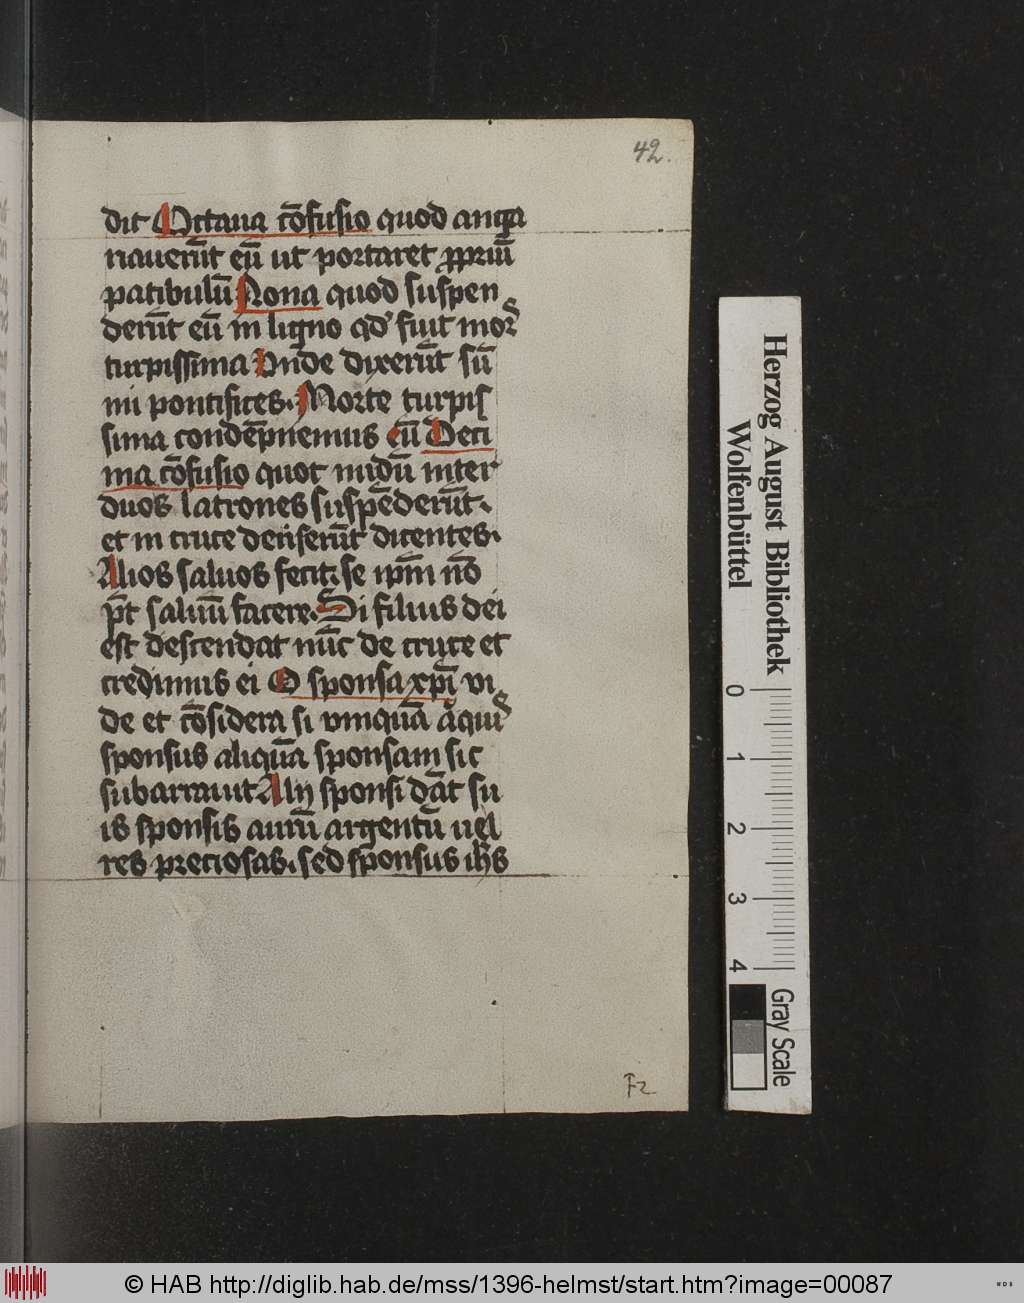 42.
dit Octaua cōfusio quod anga
riauerūt eū ut portaret ꝓpriū
patibulū Nona quod suspen
derūt eū in ligno qd' fuit mors
turpissima Vnde dixerūt sū
mi pontifices. Morte turpis
sima condēpnemus eū Deci
ma cōfusio quot nudū inter
duos latrones suspēderūt.
et in cruce deriserūt dicentes.
Alios saluos fecit. se ip̄m nō
p̄t saluū facere. Si filius dei
est descendat nūc de cruce et
credimus ei O sponsa xp̄i vi
de et cōsidera si vmquā aliquis
sponsus aliquā sponsam sic
subarrauit Alij sponsi dāt su
is sponsis aurū argentū uel
res preciosas. sed sponsus ihs
F2
Herzog August Bibliothek
Wolfenbüttel
0 1 2 3 4
Gray Scale
© HAB http://diglib.hab.de/mss/1396-helmst/start.htm?image=00087
WDB